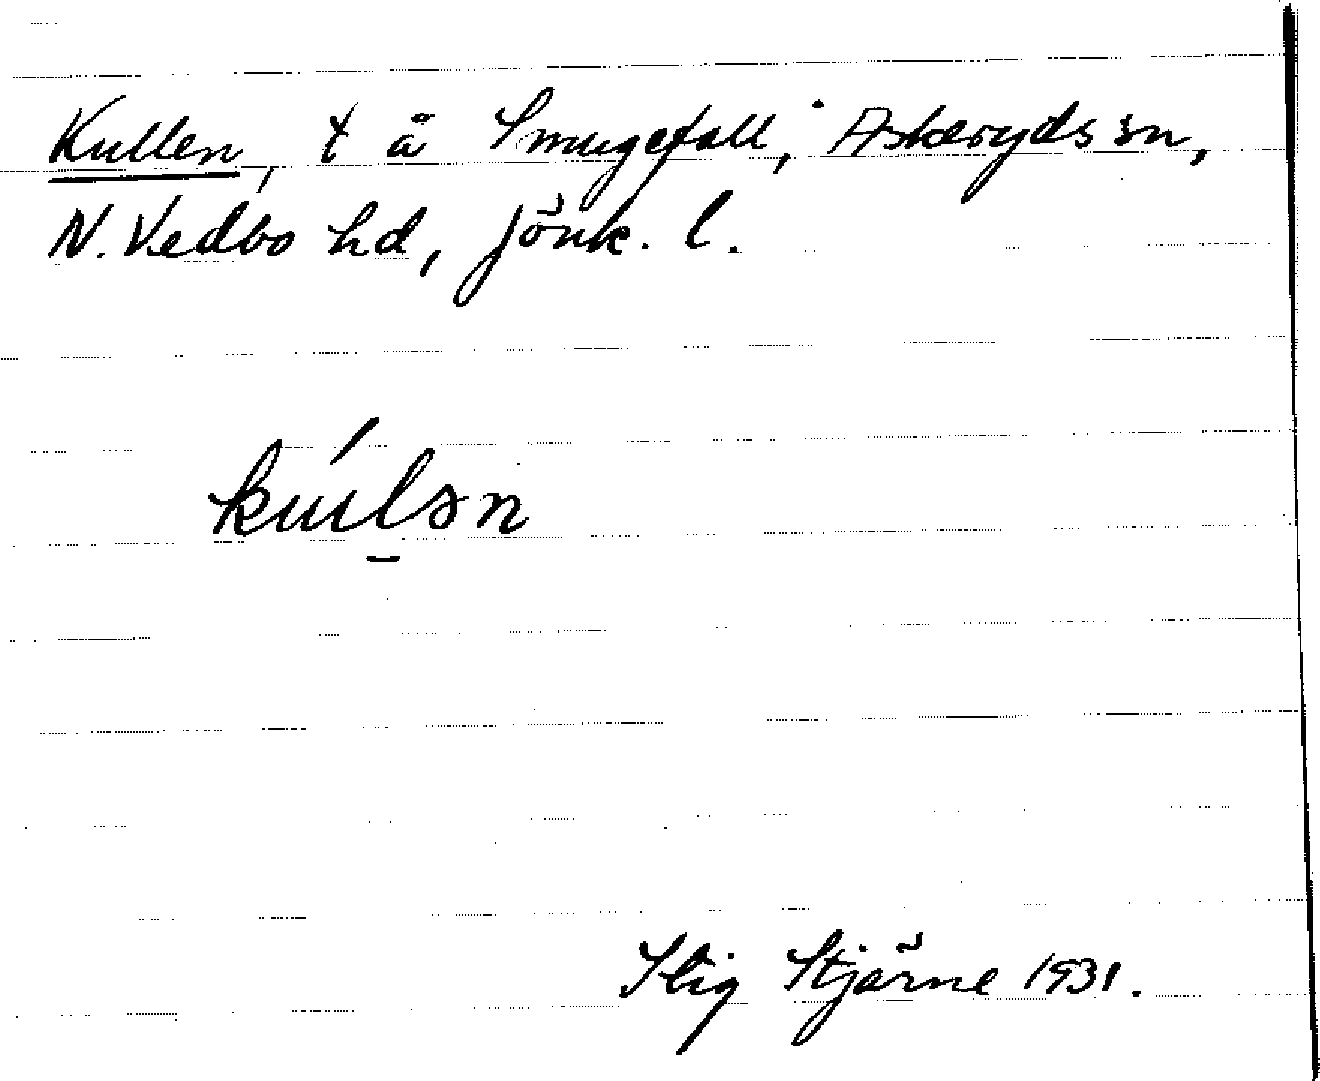 Kullen, t å Smugefall, Askeryds sn,
N. Vedbo hd, Jönk. l.
kúlən
Stig Stjärne 1931.